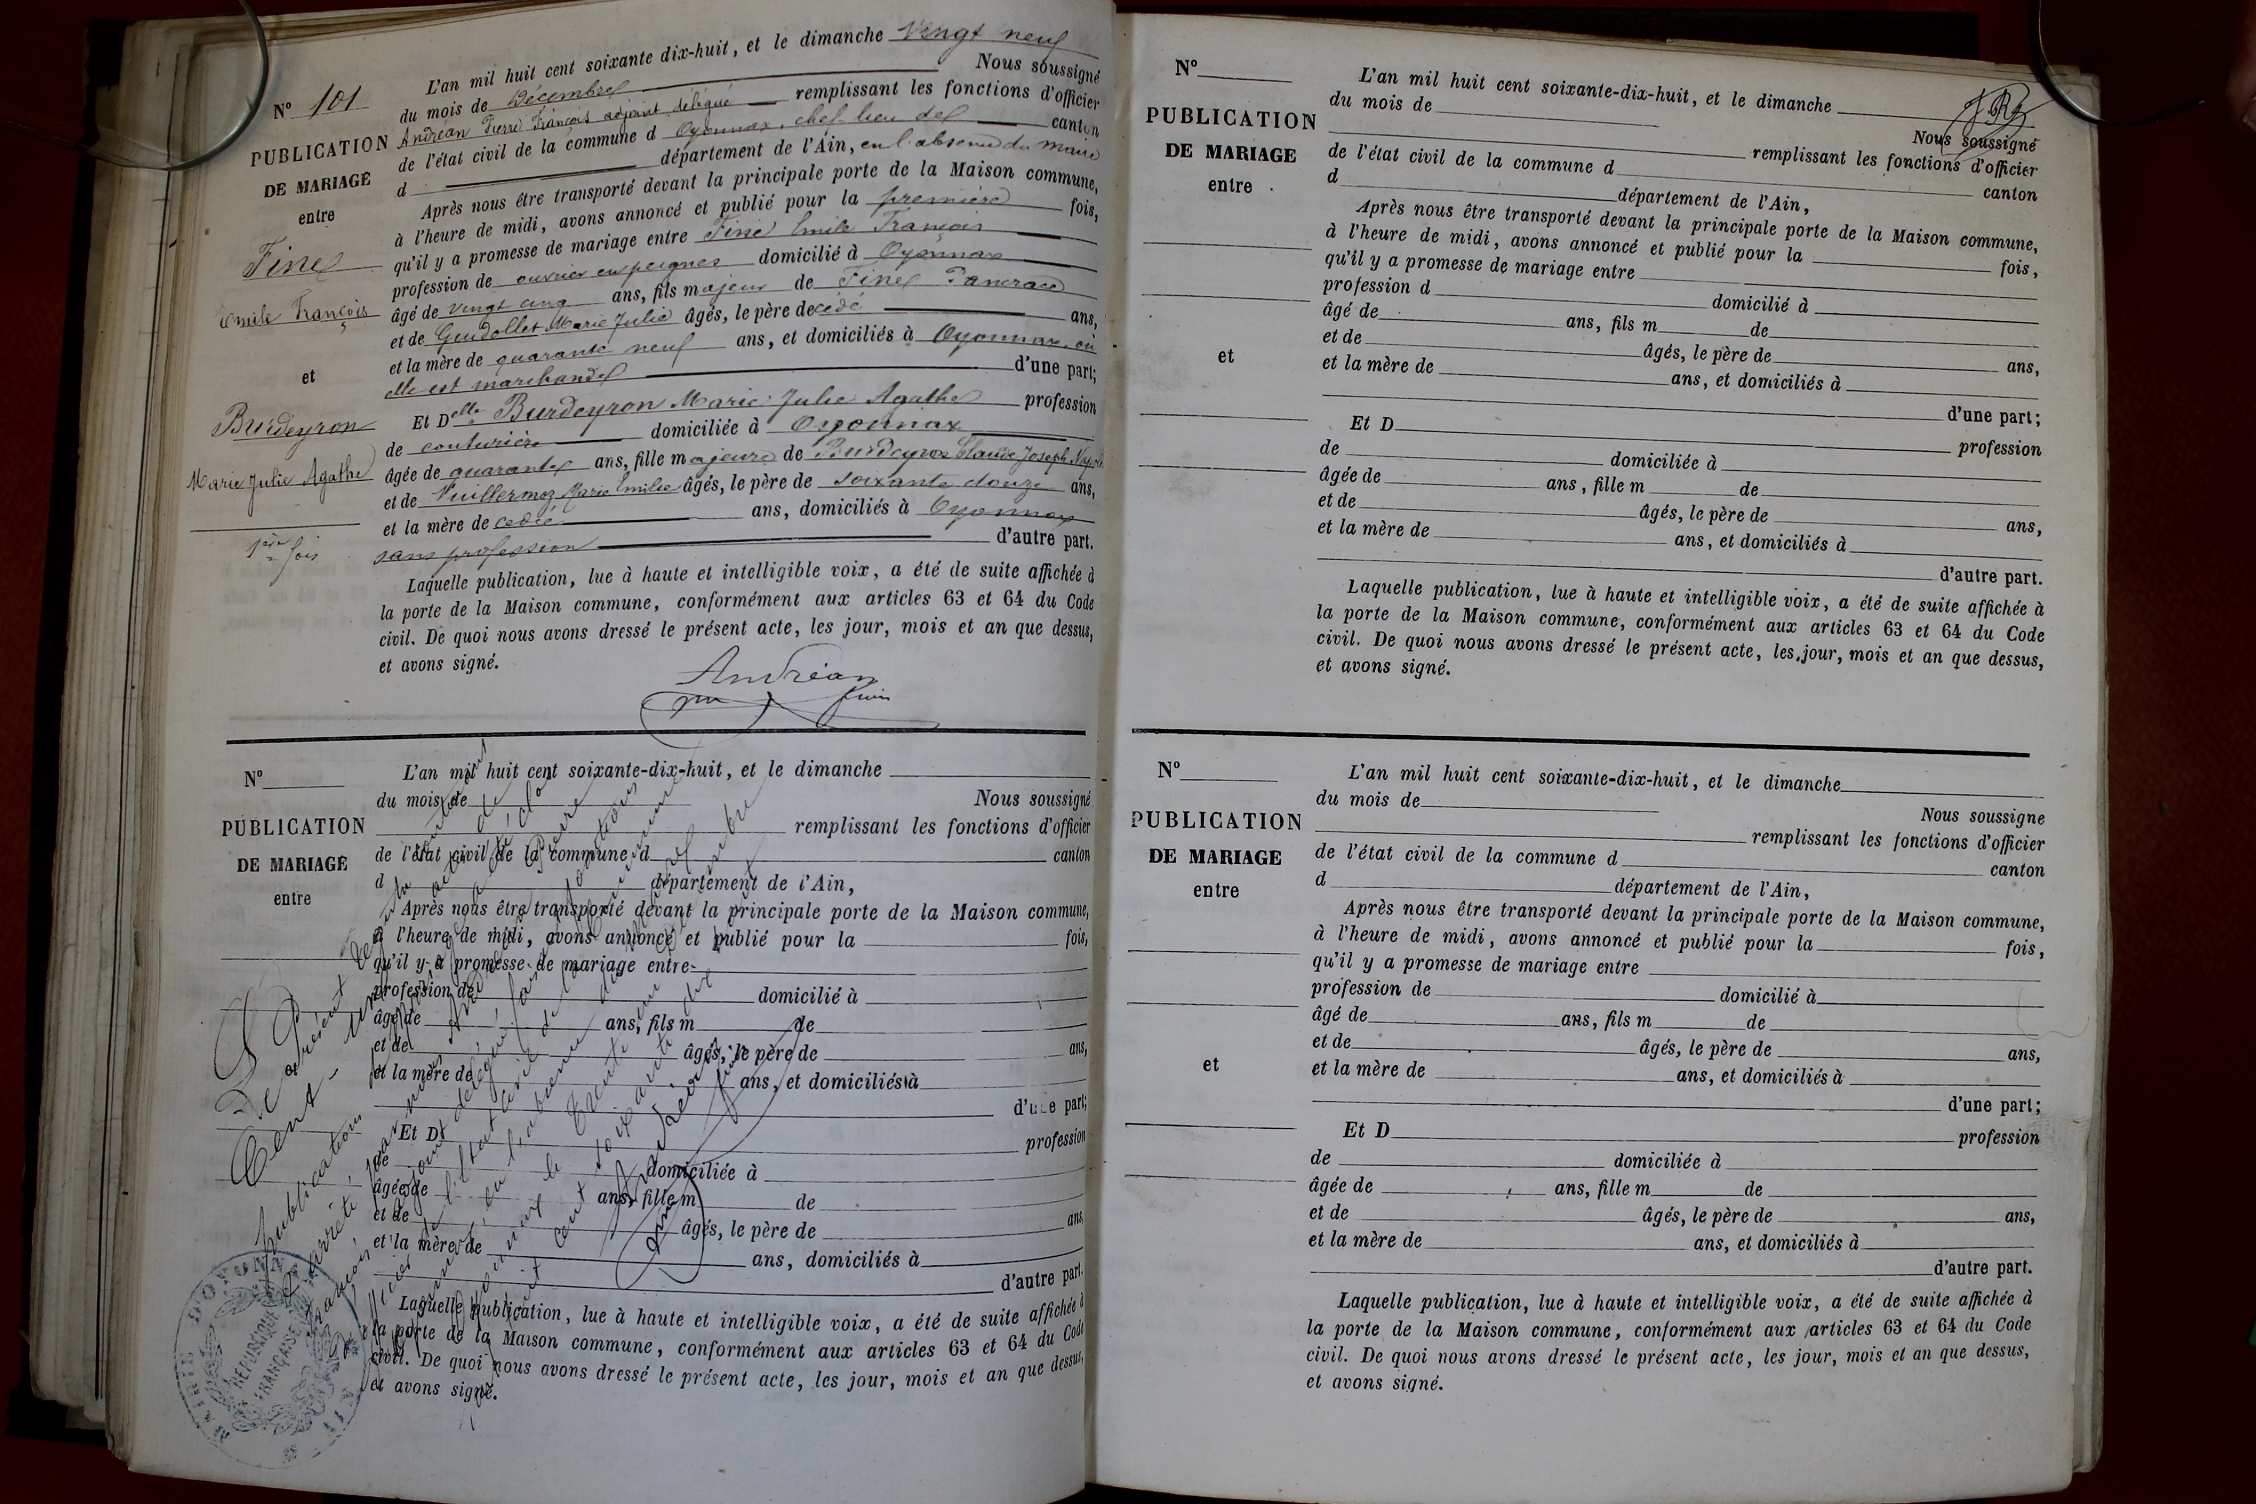 N° 101
PUBLICATION
DE MARIAGE
entre
Fine
Emile François
et
Burdeyron
Marie Julie Agathe
1ère fois
L'an mil huit cent soixante dix-huit, et le dimanche Vingt neuf
du mois de Décembre Nous soussigné
Andréan Pierre François adjoint délégué remplissant les fonctions d'officier
de l'état civil de la commune d Oyonnax, chef lieu de canton
d département de l'Ain, en l'absence du maire
Après nous être transporté devant la principale porte de la Maison commune,
à l'heure de midi, avons annoncé et publié pour la première fois,
qu'il y a promesse de mariage entre Fine Emile François
profession de ouvrier en peignes domicilié à Oyonnax
âgé de vingt cinq ans, fils majeur de Fine Pancrace
et de Gendollet Marie Julie âgés, le père décédé ans,
et la mère de quarante neuf ans, et domiciliés à Oyonnax, où
elle est marchande d'une part;
Et Delle Burdeyron Marie Julie Agathe profession
de couturière domiciliée à Oyonnax
âgée de quarante ans, fille majeure de Burdeyron Claude Joseph
et de Vuillermoz Marie Emilie âgés, le père de soixante douze ans,
et la mère décédée ans, domiciliés à Oyonnax
sans profession d'autre part.
Laquelle publication, lue à haute et intelligible voix, a été de suite affichée à
la porte de la Maison commune, conformément aux articles 63 et 64 du Code
civil. De quoi nous avons dressé le présent acte, les jour, mois et an que dessus,
et avons signé.
Andréan
N°
PUBLICATION
DE MARIAGE
entre
L'an mil huit cent soixante-dix-huit, et le dimanche
du mois de Nous soussigné
remplissant les fonctions d'officier
de l'état civil de la commune d canton
d département de l'Ain,
Après nous être transporté devant la principale porte de la Maison commune,
à l'heure de midi, avons annoncé et publié pour la fois,
qu'il y a promesse de mariage entre
profession de domicilié à
âgé de ans, fils m de
et de âgés, le père de ans,
et la mère de ans, et domiciliés à
d'une part;
Et D profession
de domiciliée à
âgée de ans, fille m de
et de âgés, le père de ans,
et la mère de ans, domiciliés à
d'autre part.
Laquelle publication, lue à haute et intelligible voix, a été de suite affichée à
la porte de la Maison commune, conformément aux articles 63 et 64 du Code
civil. De quoi nous avons dressé le présent acte, les jour, mois et an que dessus,
et avons signé.
Le présent Registre contenant
Cent un actes de
publications a été clos
et arrêté par nous Andréan Pierre
François adjoint délégué faisant fonctions
d'officier de l'état civil de la commune
d'Oyonnax, en l'absence du Maire
le trente un Décembre
mil huit cent soixante dix huit
Andréan
MAIRIE D'OYONNAX
RÉPUBLIQUE
FRANÇAISE
AIN
N°
PUBLICATION
DE MARIAGE
entre
et
L'an mil huit cent soixante-dix-huit, et le dimanche
du mois de
Nous soussigné
remplissant les fonctions d'officier
de l'état civil de la commune d canton
d département de l'Ain,
Après nous être transporté devant la principale porte de la Maison commune,
à l'heure de midi, avons annoncé et publié pour la fois,
qu'il y a promesse de mariage entre
profession d domicilié à
âgé de ans, fils m de
et de âgés, le père de ans,
et la mère de ans, et domiciliés à
d'une part;
Et D profession
de domiciliée à
âgée de ans, fille m de
et de âgés, le père de ans,
et la mère de ans, et domiciliés à
d'autre part.
Laquelle publication, lue à haute et intelligible voix, a été de suite affichée à
la porte de la Maison commune, conformément aux articles 63 et 64 du Code
civil. De quoi nous avons dressé le présent acte, les jour, mois et an que dessus,
et avons signé.
N°
PUBLICATION
DE MARIAGE
entre
et
L'an mil huit cent soixante-dix-huit, et le dimanche
du mois de Nous soussigne
remplissant les fonctions d'officier
de l'état civil de la commune d canton
d département de l'Ain,
Après nous être transporté devant la principale porte de la Maison commune,
à l'heure de midi, avons annoncé et publié pour la fois,
qu'il y a promesse de mariage entre
profession de domicilié à
âgé de ans, fils m de
et de âgés, le père de ans,
et la mère de ans, et domiciliés à
d'une part;
Et D profession
de domiciliée à
âgée de ans, fille m de
et de âgés, le père de ans,
et la mère de ans, et domiciliés à
d'autre part.
Laquelle publication, lue à haute et intelligible voix, a été de suite affichée à
la porte de la Maison commune, conformément aux articles 63 et 64 du Code
civil. De quoi nous avons dressé le présent acte, les jour, mois et an que dessus,
et avons signé.